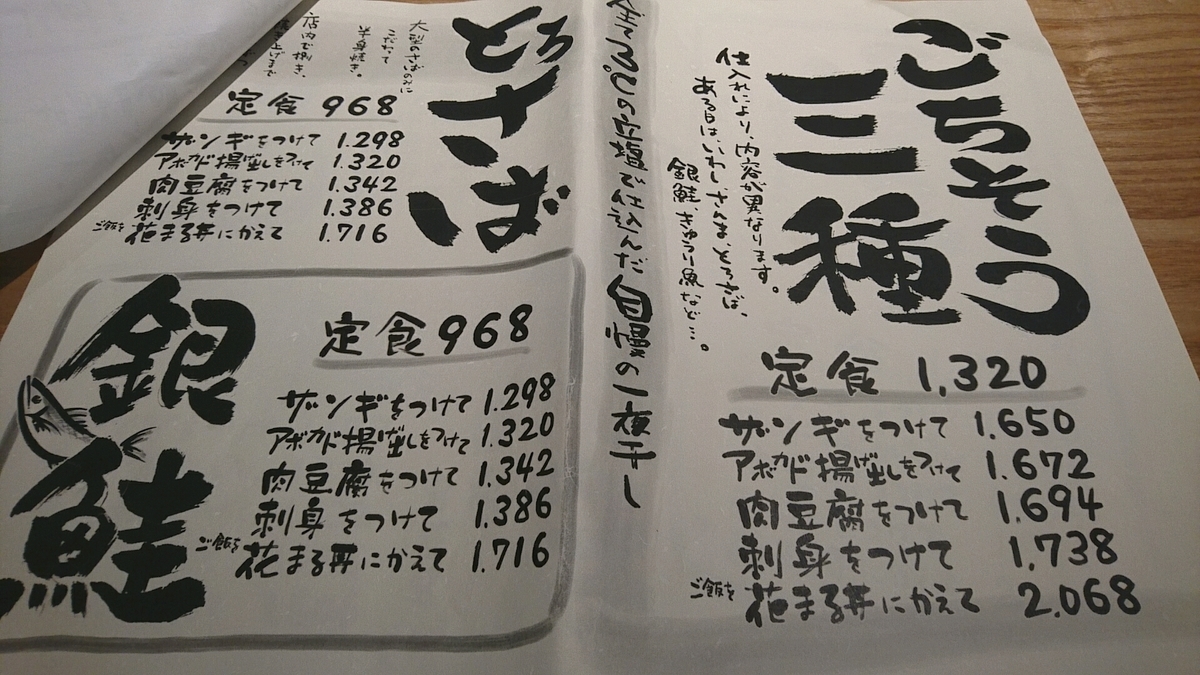 ごちそう
三種
仕入れにより、内容が異なります。
ある日は、いわし、さんま、とろさば、
銀鮭、きゅうり魚など…。
定食 1,320
ザンギをつけて 1.650
アボカド揚げ出しをつけて 1.672
肉豆腐をつけて 1.694
刺身をつけて 1,738
ご飯を花まる丼にかえて 2.068
℃の立塩で仕込んだ自慢の一夜干し
とろさば
大型のさばのみに
こだわって
半身焼き。
店内で捌き、
定食 968
ザンギをつけて 1.298
アボカド揚げ出しをつけて 1.320
肉豆腐をつけて 1.342
刺身をつけて 1.386
ご飯を花まる丼にかえて 1.716
銀鮭
定食 968
ザンギをつけて 1.298
アボカド揚げ出しをつけて 1.320
肉豆腐をつけて 1.342
刺身をつけて 1.386
ご飯を花まる丼にかえて 1.716